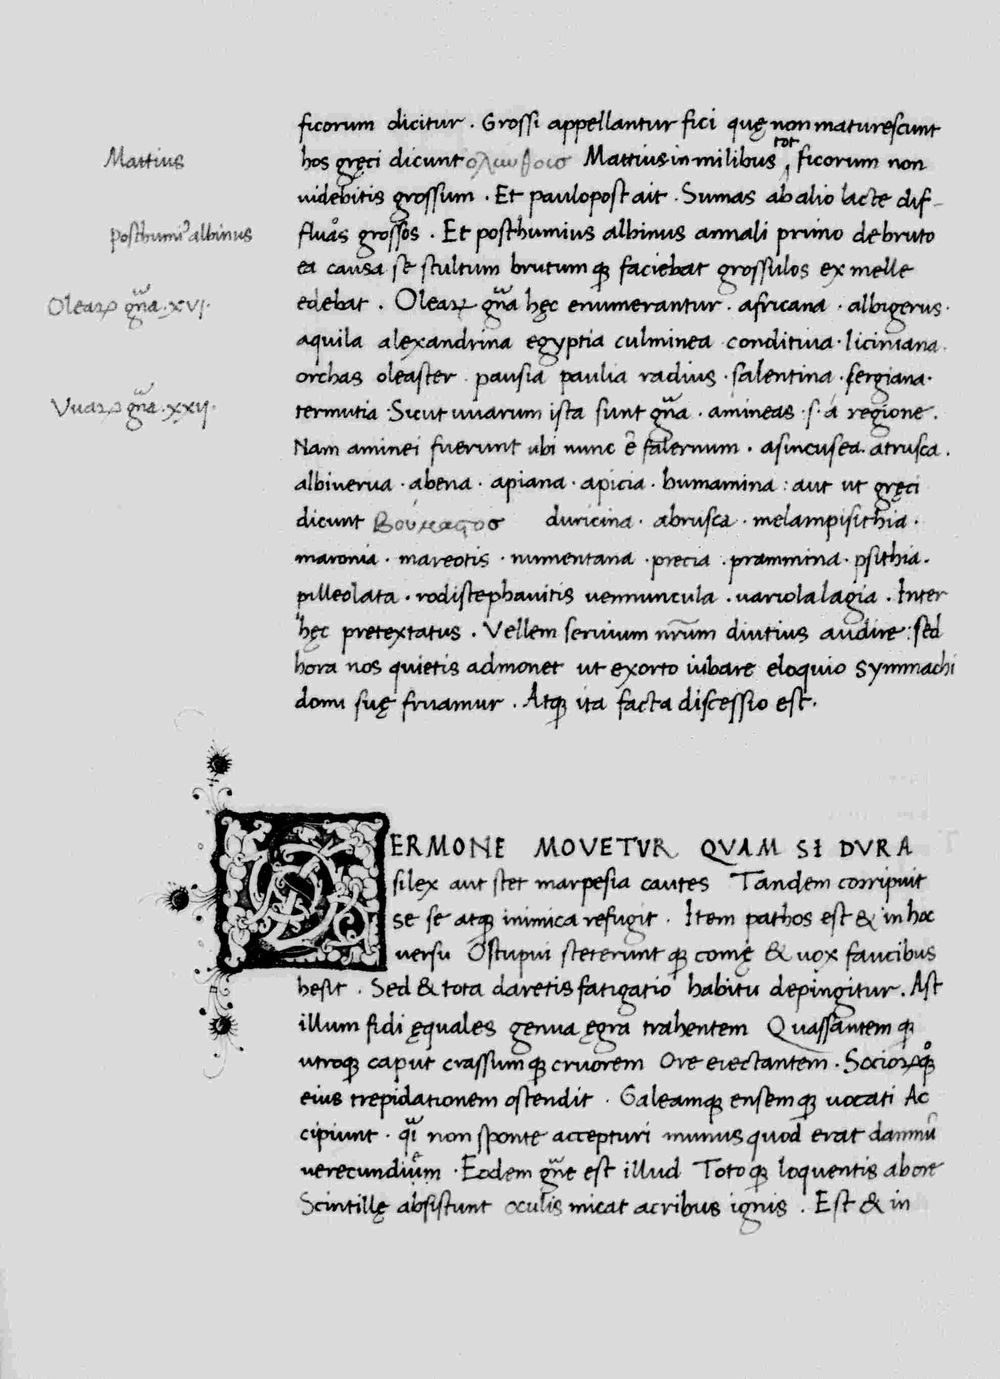 ficorum dicitur . Grossi appellantur fici quę non maturescunt
Mattius
hos gręci dicunt ολιυθοισ Mattius in milibus tot ficorum non
uidebitis grossum . Et paulopost ait . Sumas ab alio lacte dif-
Posthumi⁹ albinus
fluos grossos . Et posthumius albinus annali primo de bruto
ea causa se stultum brutum q; faciebat grossulos ex melle
Oleaꝝ gn̄a . xvi .
edebat . Oleaꝝ gn̄a hęc enumerantur . africana . albigerus .
aquila alexandrina egyptia culminea conditiua . liciniana .
orchas oleaster pausia paulia radius . salentina . sergiana .
Vuaꝝ gn̄a . xxii .
termutia . Sicut uuarum ista sunt gn̄a . amineas . s . á regione .
Nam aminei fuerunt ubi nunc ē falernum . asincusea . atrusca .
albiuerua . abena . apiana . apicia . bumamina : aut ut gręci
dicunt Βούμαςοσ duricina . abrusca . melampisithia .
maronia . mareotis . numentana . precia . prammina . psithia .
pilleolata . rodistephauitis uennuncula . uariola lagia . Inter
hęc pretextatus . Vellem seruium nr̄um diutius audire : sed
hora nos quietis admonet ut exorto iubare eloquio symmachi
domi suę fruamur . Atq; ita facta discessio est .
ERMONE MOVETUR QVAM SI DVRA
silex aut stet marpesia cautes Tandem corripuit
se se atq; inimica refugit . Item pathos est & in hoc
uersu Ostupui steterunt q; comę & uox faucibus
hesit . Sed & tota daretis fatigatio habitu depingitur . Ast
illum fidi ęquales genua ęgra trahentem Quassantem q;
utroq; caput crassum q; cruorem Ore eiectantem . Socioꝝ q;
eius trepidationem ostendit . Galeamq; ensem q; uocati Ac
cipiunt . qi non sponte accepturi munus quod erat damnū
uerecundium . Eodem gn̄e est illud Toto q; loquentis ab ore
Scintillę absistunt oculis micat acribus ignis . Est & in